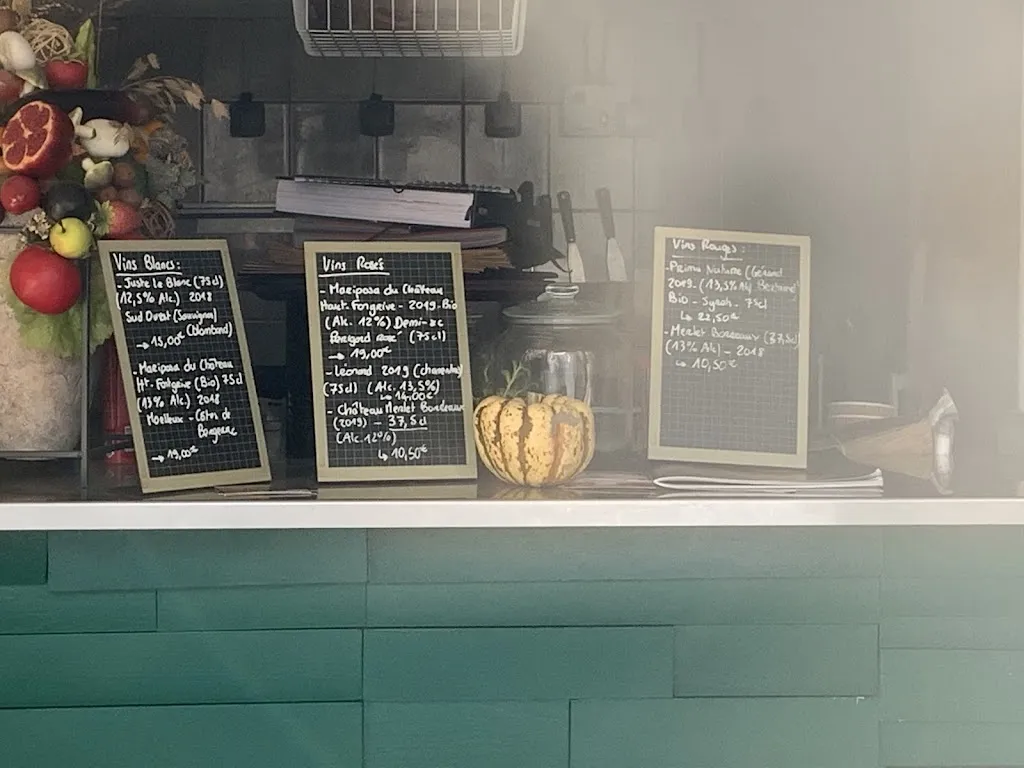 Vins Blancs:
- Juste Le Blanc (75cl)
12,5% Alc.) 2018
Sud Ouest (Sauvignon)
→ 15,00€ (Colombard)
- Mariposa du Château
Ht. Fongrive (Bio) 75cl
(13% Alc.) 2018
Moelleux - Côtes de
Bergerac
→ 19,00€
Vins Rosés
- Mariposa du Château
Haut-Fongrive - 2019-Bio
(Alc. 12%) Demi-sec
Périgord rosé (75cl)
→ 19,00€
- Léonard 2019 (charentais)
(75cl) (Alc. 13,5%)
↳ 14,00€
- Château Merlet Bordeaux
(2019) - 37,5cl
(Alc.12%)
↳ 10,50€
Vins Rouges:
- Primo Nature (Gérard
2019- (13,5% Alc) Bertrand)
Bio - Syrah - 75cl
↳ 22,50€
- Merlet Bordeaux (37,5cl)
(13% Alc) - 2018
↳ 10,50€